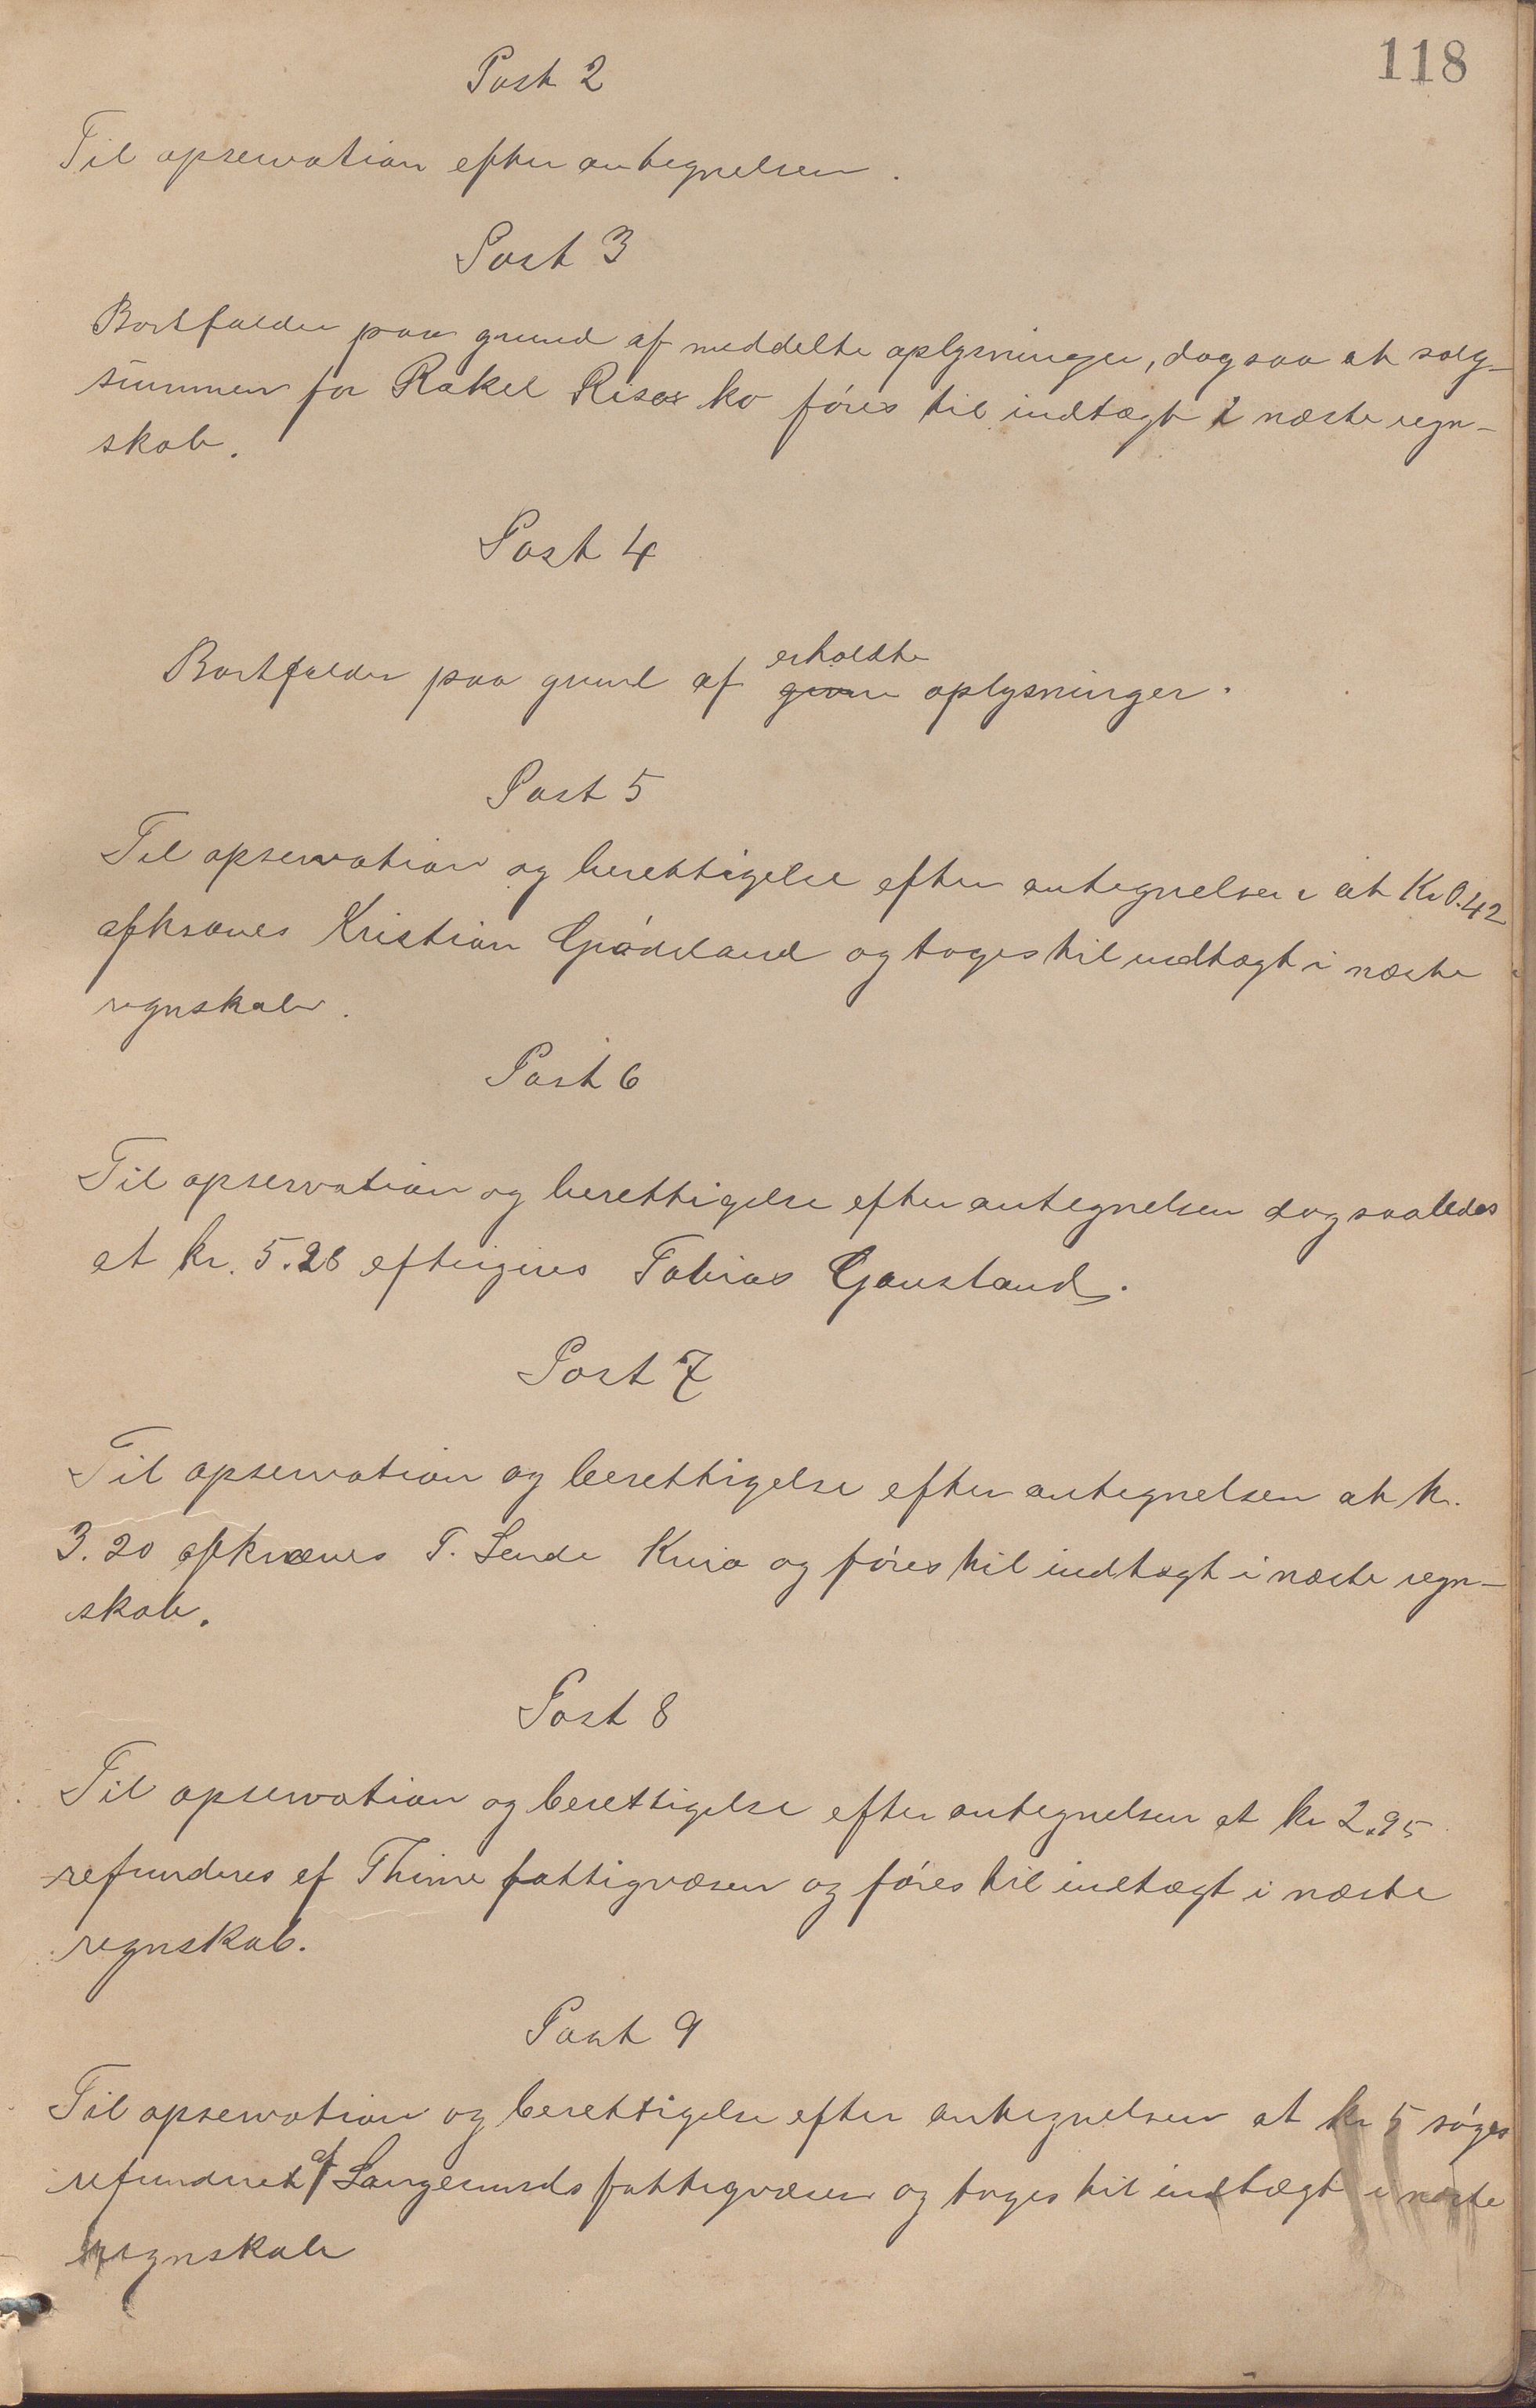 118
Post 2
Til opservation efter antegnelsen.
Post 3
Bortfalder paa grund af meddelte oplysninger, dog saa at salg-
summen for Rakel Rises ko føres til indtægt i næste regn-
skab.
Post 4
erholdte
Bortfalder paa grund af givne oplysninger.
Post 5
Til opservation og berettigelse efter antegnelsen at Kr 0.42
afkræves Kristian Grødeland og tages til indtægt i næste
regnskab.
Post 6
Til opservation og berettigelse efter antegnelsen dog saaledes
at kr. 5.28 eftergives Tobias Gausland.
Post 7
Til opservation og berettigelse efter antegnelsen at kr.
3.20 afkræves T. Lende Kvia og føres til indtægt i næste regn-
skab.
Post 8
Til opservation og berettigelse efter antegnelsen at kr 2.95
refunderes af Thime fattigvæsen og føres til indtægt i næste
regnskab.
Post 9
Til opservation og berettigelse efter antegnelsen at kr 5 søges
refunderet af Langesunds fattigvæsen og tages til indtægt i næste
regnskab